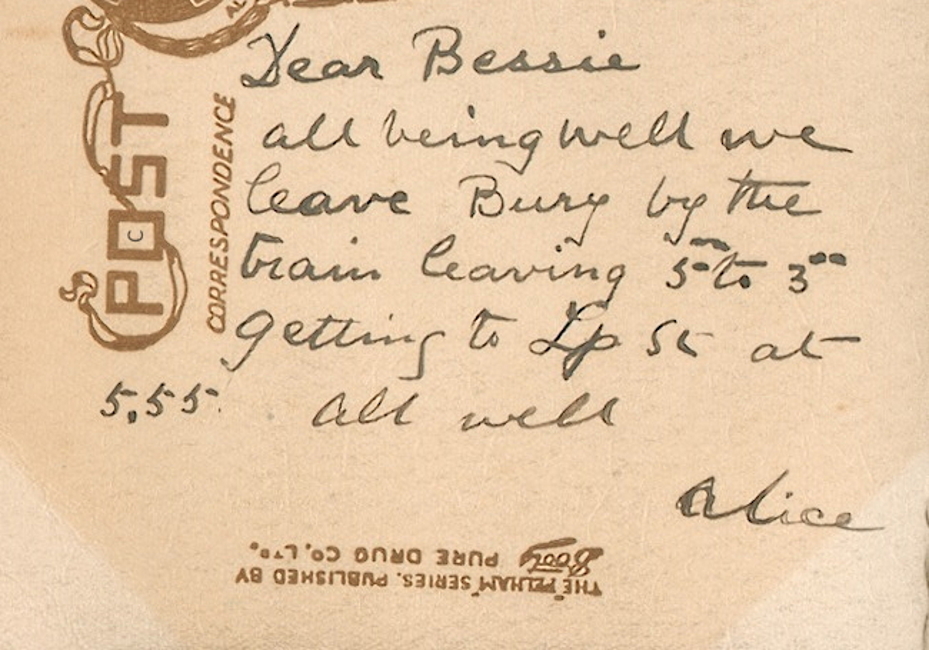 Dear Bessie
all being well we
leave Bury by the
train leaving 5 to 3
getting to Lp St at
5.55. all well
Alice
POST C
CORRESPONDENCE
THE "PELHAM" SERIES. PUBLISHED BY
Boots PURE DRUG CO, LTD.